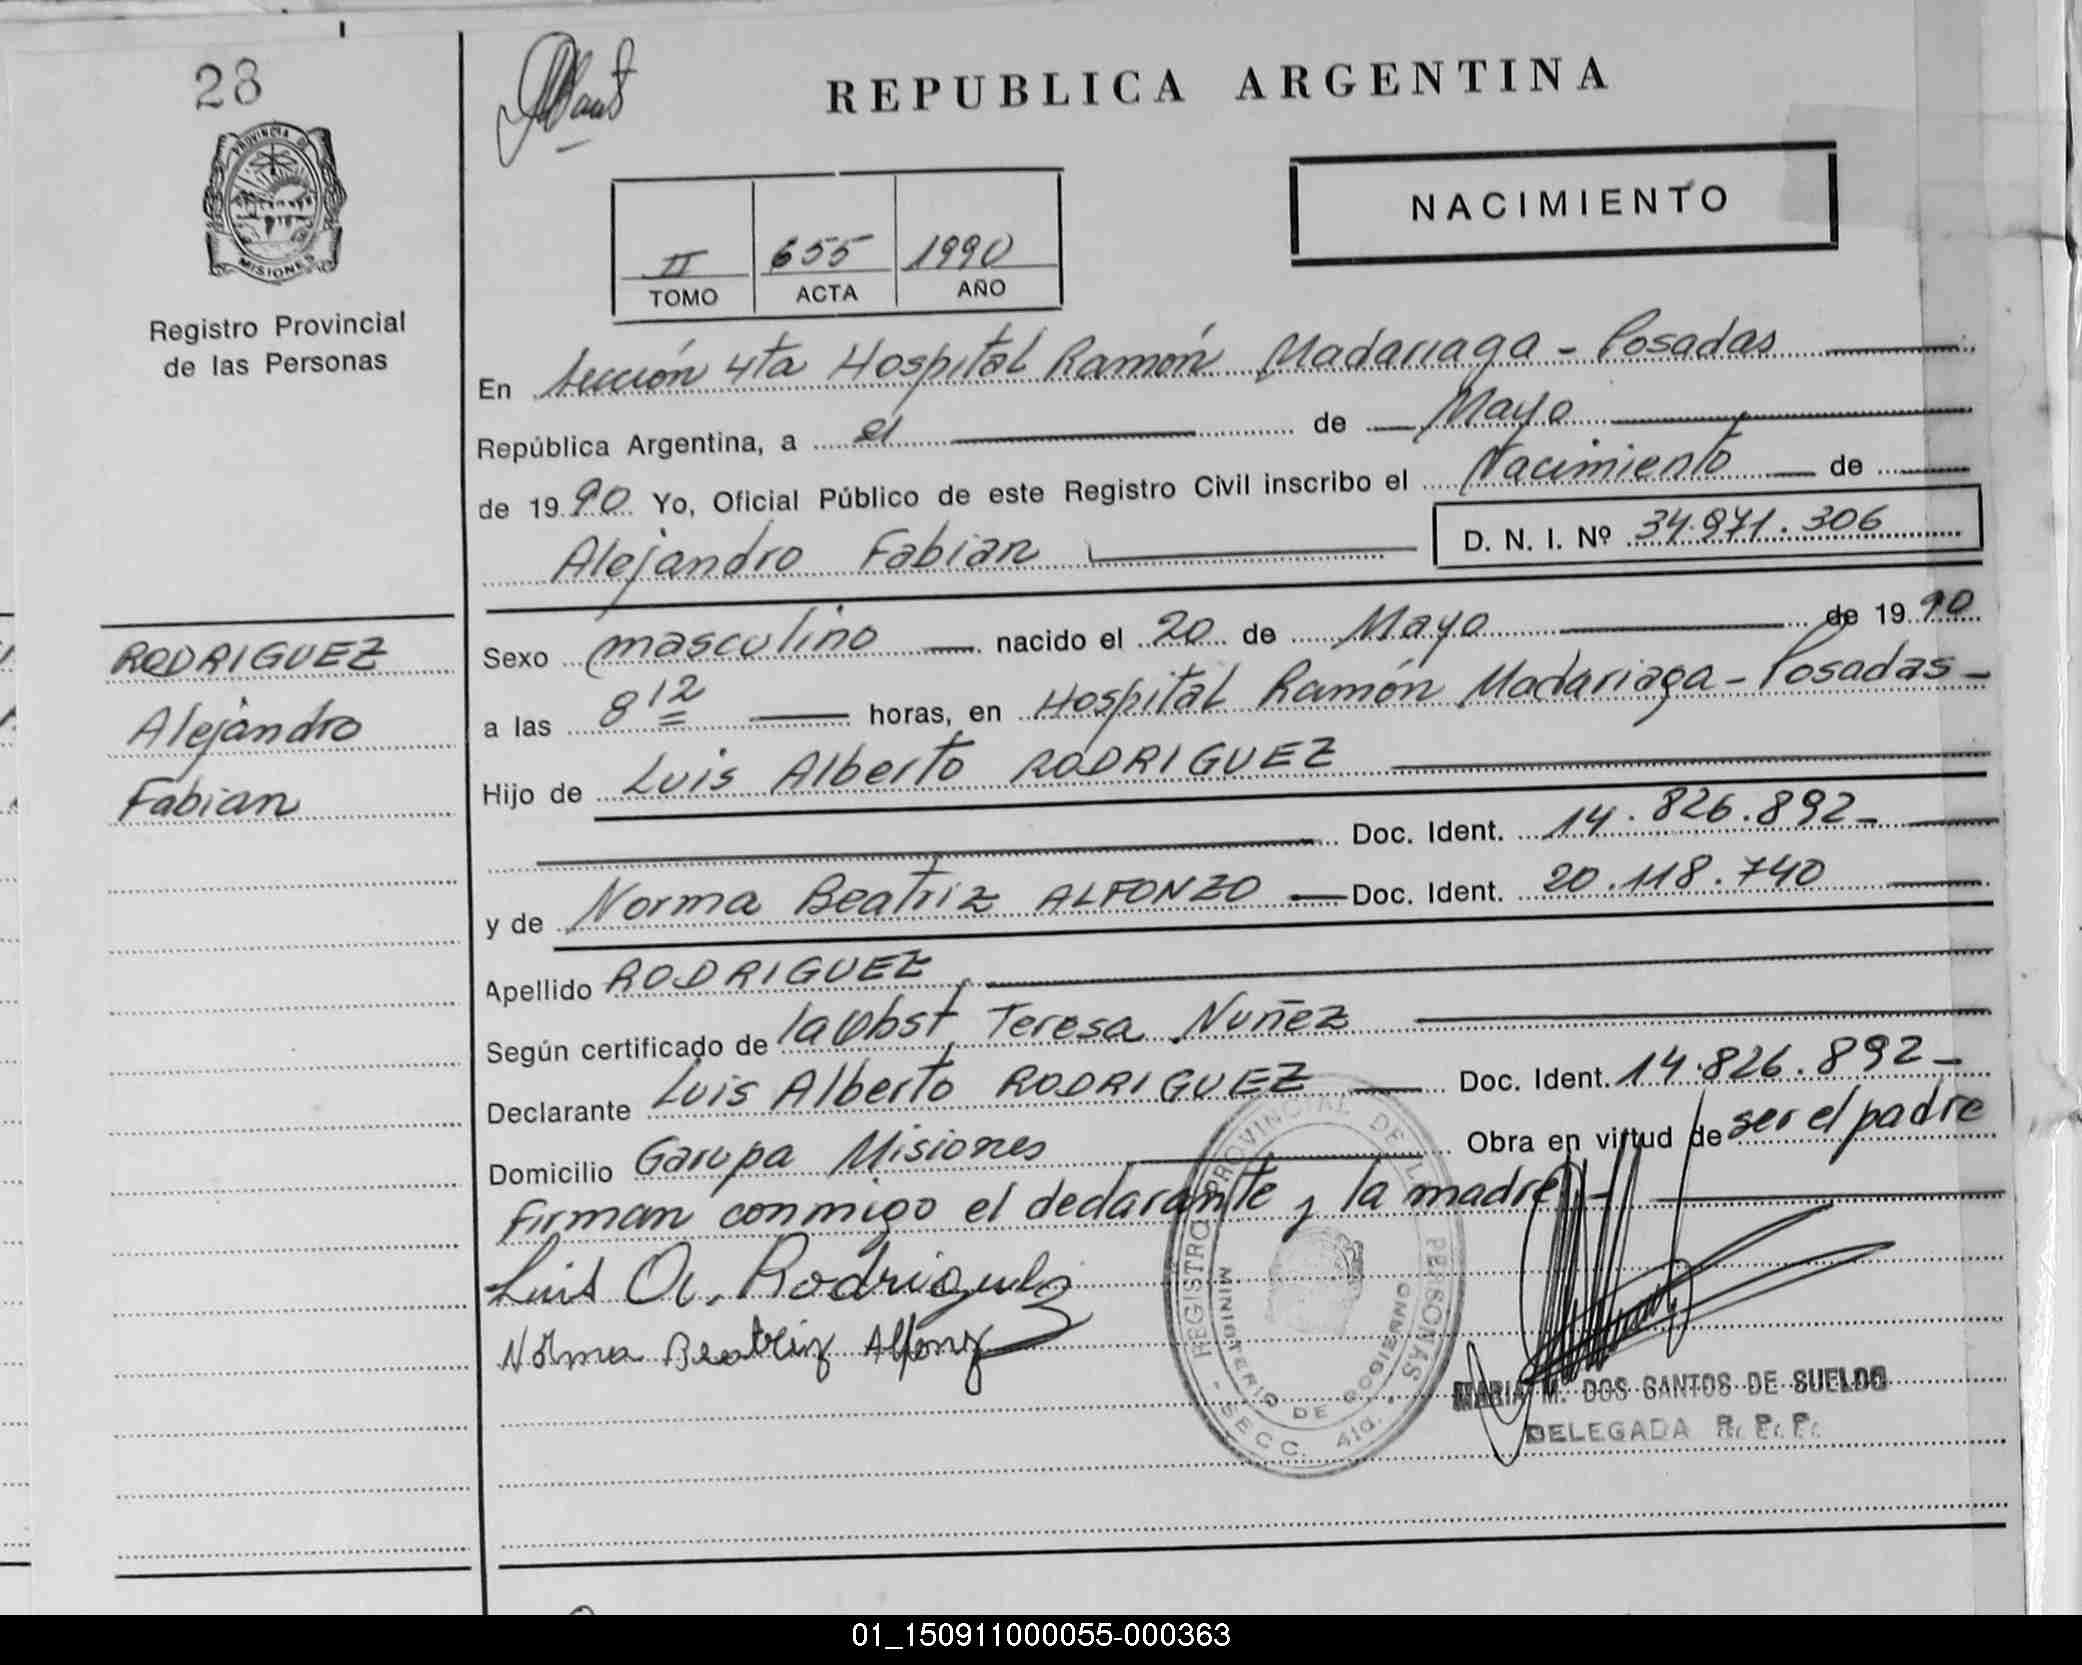 28
PROVINCIA DE
MISIONES
Registro Provincial
de las Personas
RODRIGUEZ
Alejandro
Fabian
REPUBLICA ARGENTINA
NACIMIENTO
II 655 1990
TOMO ACTA AÑO
En Sección 4ta Hospital Ramón Madariaga - Posadas
República Argentina, a 21 de Mayo
de 1990 Yo, Oficial Público de este Registro Civil inscribo el Nacimiento de
Alejandro Fabian D. N. I. Nº 34.971.306
Sexo masculino nacido el 20 de Mayo de 1990
a las 8 12 horas, en Hospital Ramón Madariaga - Posadas -
Hijo de Luis Alberto RODRIGUEZ
Doc. Ident. 14.826.892-
y de Norma Beatriz ALFONZO Doc. Ident. 20.118.740
Apellido RODRIGUEZ
Según certificado de la Obst, Teresa Nuñez
Declarante Luis Alberto RODRIGUEZ Doc. Ident. 14.826.892-
Domicilio Garupa Misiones Obra en virtud de ser el padre
Firman conmigo el declarante y la madre.-
Luis A. Rodriguez
Norma Beatriz Alfonzo
REGISTRO PROVINCIAL DE LAS PERSONAS
MINISTERIO DE GOBIERNO
- SECC. 4ta. -
MARIA M. DOS SANTOS DE SUELDO
DELEGADA R. P. P.
01_150911000055-000363